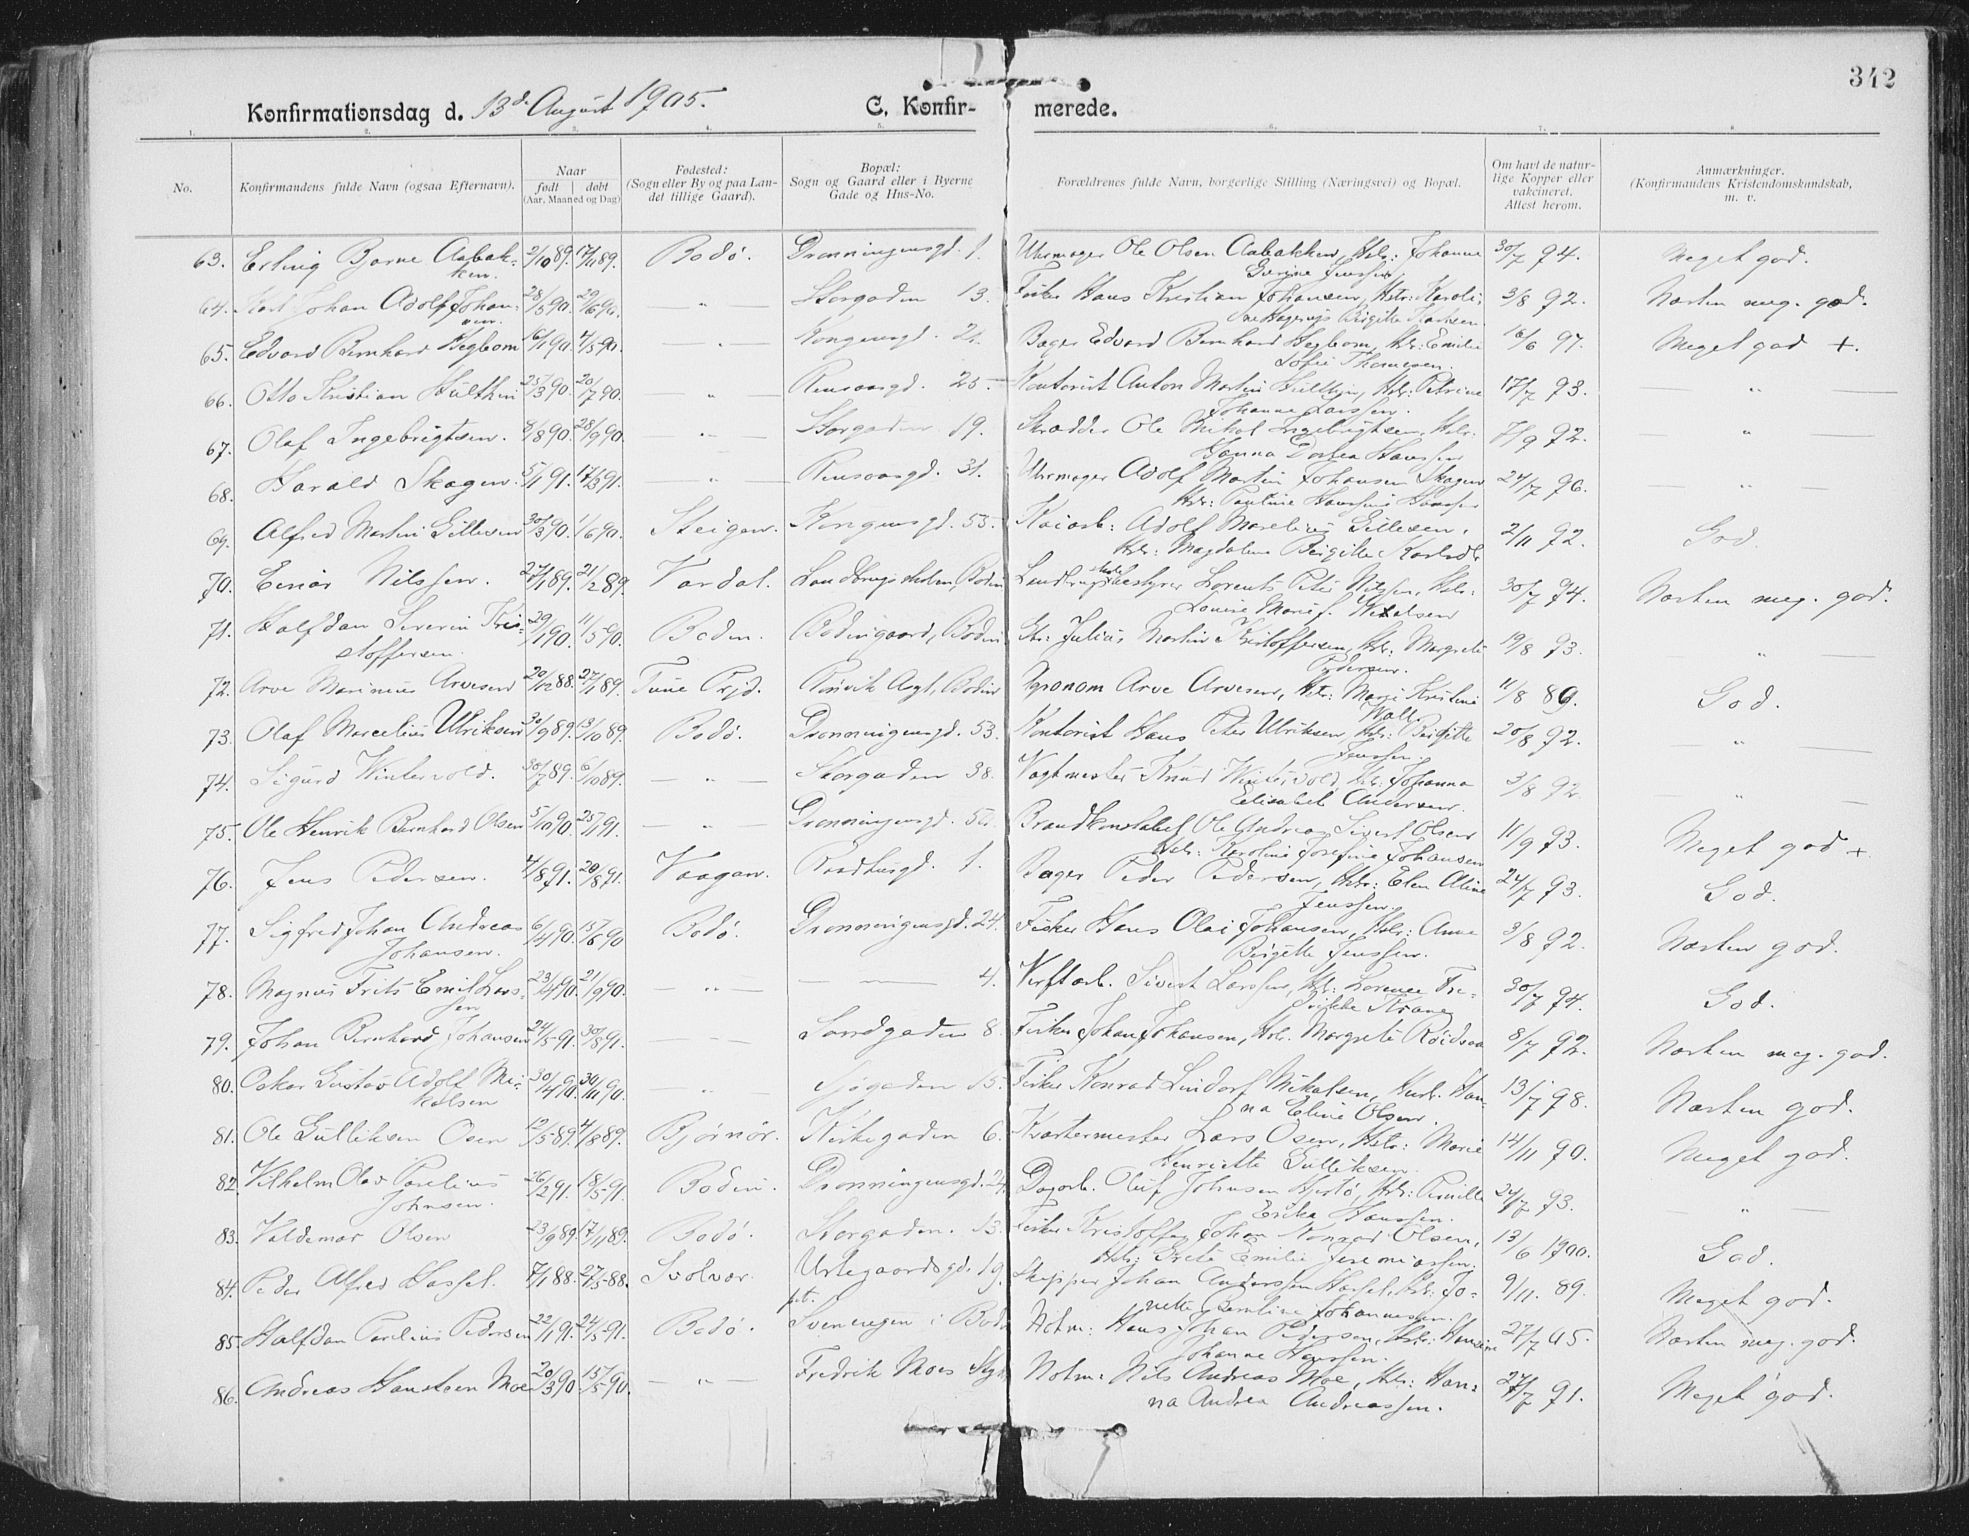 342
Konfirmationsdag d. 13d August 1905. C. Konfir- merede.
1. 2. 3. 4. 5. 6. 7. 8.
No. Konfirmandens fulde Navn (ogsaa Efternavn). Naar født døbt (Aar, Maaned og Dag) Fødested: (Sogn eller By og paa Landet tillige Gaard). Bopæl: Sogn og Gaard eller i Byerne Gade og Hus-No. Forældrenes fulde Navn, borgerlige Stilling (Næringsvei) og Bopæl. Om havt de naturlige Kopper eller vakcineret. Attest herom. Anmærkninger. (Konfirmandens Kristendomskundskab, m. v.
63. Erling Bjarne Aabak- 2/10 89. 17/11 89. Bodø. Dronningensgd. 1. Uhrmager Ole Olsen Aabakken, Hstr: Johanne 30/7 94. Meget god.
ken. Gurine Jenssen
64. Karl Johan Adolf Johan- 28/5 90. 29/6 90. — " — Storgaden 13. Fisker Hans Kristian Johansen, Hstr: Karoli- 3/8 92. Næsten meg. god.
sen. Birgitte
65. Edvard Bernhard Hegbom 16/1 90. 4/5 90. — " — Kongensgd. Bager Edvard Bernhard Hegbom, Hstr: Emilie 16/6 97. Meget god +.
Sofie Thomesen.
66. Otto Kristian Hulthin 25/3 90. 20/7 90. — " — Rensaasgd. 25. Kontorist Anton Martin Hulthin, Hstr: Petrine 17/7 93. — " —
Johanne Larssen.
67. Olaf Ingebrigtsen. 8/8 90. 28/9 90. — " — Storgaden 19. Skrædder Ole Nikol Ingebrigtsen, Hstr: 7/9 92. — " —
Hanna Dortea Hanssen
68. Harald Skagen. 5/1 91. 17/3 91. — " — Rensaasgd. 31. Uhrmager Adolf Martin Johansen Skagen 24/7 96. — " —
Hstr: Pauline
69. Alfred Martin Gillesen 30/3 90. 1/6 90. Steigen. Kongensgd. 55. Kaiarb: Adolf Marelius Gillesen, 2/11 92. God.
Hstr: Magdalena Birgitte Karlsdtr
70. Einar Nilssen. 27/1 89. 21/2 89. Vardal. Landbrugsskolen, Bodin Landbrugsskolebestyrer Lorents Peter Nilssen, Hstr: 30/7 94. Næsten meg. god.
Louise Marie f.
71. Halfdan Severin Kri- 29/1 90. 11/5 90. Bodin. Bodingaard, Bodin Gbr: Julius Martin Kristoffersen, Hstr: Margrete 19/8 93. — " —
stoffersen. Pedersen.
72. Arve Marinius Arvesen 20/12 88. 27/1 89. Tune Prjd. Rønvik Asyl, Bodin Agronom Arve Arvesen, Hstr: Marie Kristine 11/8 89. God.
Wall.
73. Olaf Marcelius Ulriksen 30/9 89. 13/10 89. Bodø. Dronningensgd. 53. Kontorist Hans Peter Ulriksen, Hstr: Birgitte 20/8 92. — " —
Jenssen.
74. Sigurd Wintervold. 30/7 89. 6/10 89. — " — Storgaden 38. Vagtmester Knud Wintervold, Hstr: Johanna 3/8 92 — " —
Elisabet Andersen.
75. Ole Henrik Bernhard Olsen 5/10 90. 25/1 91. — " — Dronningensgd. Brandkonstabel Ole Andreas Sivert Olsen 11/9 93. Meget god +
Hstr: Karoline Josefine Johansen
76. Jens Pedersen. 4/8 91. 20/8 91. Vaagan. Raadhusgd. 1. Bager Peder Pedersen, Hstr: Elen Aline 24/7 93. God.
Jenssen.
77. Sigfred Johan Andreas 6/4 90. 15/6 90 Bodø. Dronningensgd. 24. Fisker Hans Olai Johansen, Hstr: Anne 3/8 92. Næsten god.
Johansen. Birgitte Jenssen.
78. Magnus Frits Emil Lars- 23/4 90. 21/9 90. — " — — — 4. Verftarb. Sivert Larssen, Hstr: Lorence Fre- 30/7 94. God.
sen. drikke Krane
79. Johan Bernhard Johansen 24/5 91. 30/8 91. — — Sandgaden 8. Fisker Johan Johansen, Hstr. Margrete 8/7 92. Næsten meg. god.
80. Oskar Gustav Adolf Mi- 30/4 90. 30/11 90. — " — Sjøgaden 15. Fisker Konrad Lindorf Mikalsen, Hustr. Han- 13/7 98. Næsten god.
kalsen na Eline Olsen.
81. Ole Gulliksen Osen 12/5 89. 4/8 89. Bjørnør. Kirkegaden 6. Kvartermester Lars Osen, Hstr: Marie 14/11 90. Meget god.
Henriette Gulliksen.
82. Vilhelm Olav Parelius 26/2 91. 18/5 91. Bodin. Dronningensgd. 24. Dagarb. Oluf Johnsen Hjertø, Hstr: Pernille 24/7 93. — " —
Johnsen. Erika Hanssen.
83. Valdemar Olsen 23/9 89. 17/11 89. Bodø. Storgaden. 13. Fisker Kristoffer Johan Konrad Olsen, 13/6 1900. God.
Hstr: Grete Emilie Jeremiassen.
84. Peder Alfred Hassel. 7/1 88. 27/5 88. Svolvær. Urtegaardsgd. 19. Skipper Johan Anderssen Hassel, Hstr: Jo- 9/11. 89. Meget god.
nette Johannesen.
85. Halfdan Parelius Pedersen 22/1 91. 24/5 91. Bodø. Sveneengen i Bodø Notm: Hans Johan Pedersen, Hstr: Hansine 27/7 45. Næsten meg. god.
Johanne Hanssen.
86. Andreas Hansteen Moe 20/3 90. 15/5 90. — " — Fredrik Moes Notm: Nils Andreas Moe, Hstr: Han- 27/7 91. Meget god.
na Andrea Andreassen.